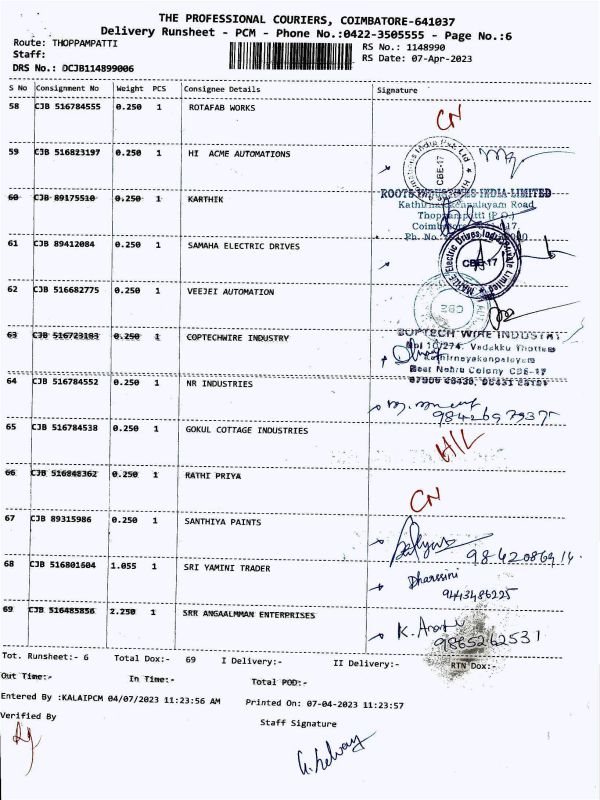 THE PROFESSIONAL COURIERS, COIMBATORE-641037
Delivery Runsheet - PCM - Phone No.:0422-3505555 - Page No.:6
Route: THOPPAMPATTI RS No.: 1148990
Staff: RS Date: 07-Apr-2023
DRS No.: DCJB114899006
S No Consignment No Weight PCS Consignee Details Signature
58 CJB 516784555 0.250 1 ROTAFAB WORKS CN
59 CJB 516823197 0.250 1 HI ACME AUTOMATIONS
CBE-17
60 CJB 89175510 0.250 1 KARTHIK
ROOTS INDUSTRIES INDIA LIMITED
Kathirnaickenpalayam Road
Thoppampatti (P.O.)
61 CJB 89412084 0.250 1 SAMAHA ELECTRIC DRIVES
CBE-17
62 CJB 516682775 0.250 1 VEEJEI AUTOMATION
CBE
63 CJB 516723183 0.250 1 COPTECHWIRE INDUSTRY
COPTECH WIRE INDUSTRY
10/274, Vadakku Thottam
Kathirnayakanpalayam
Near Nehru Colony CBE-17
64 CJB 516784552 0.250 1 NR INDUSTRIES
65 CJB 516784538 0.250 1 GOKUL COTTAGE INDUSTRIES
66 CJB 516848362 0.250 1 RATHI PRIYA CN
67 CJB 89315986 0.250 1 SANTHIYA PAINTS
68 CJB 516801604 1.055 1 SRI YAMINI TRADER Dharssini
9443486225
69 CJB 516485856 2.250 1 SRR ANGAALMMAN ENTERPRISES
9865242531
Tot. Runsheet:- 6 Total Dox:- 69 I Delivery:- II Delivery:- RTN Dox:-
Out Time:- In Time:- Total POD:-
Entered By :KALAIPCM 04/07/2023 11:23:56 AM Printed On: 07-04-2023 11:23:57
Verified By Staff Signature